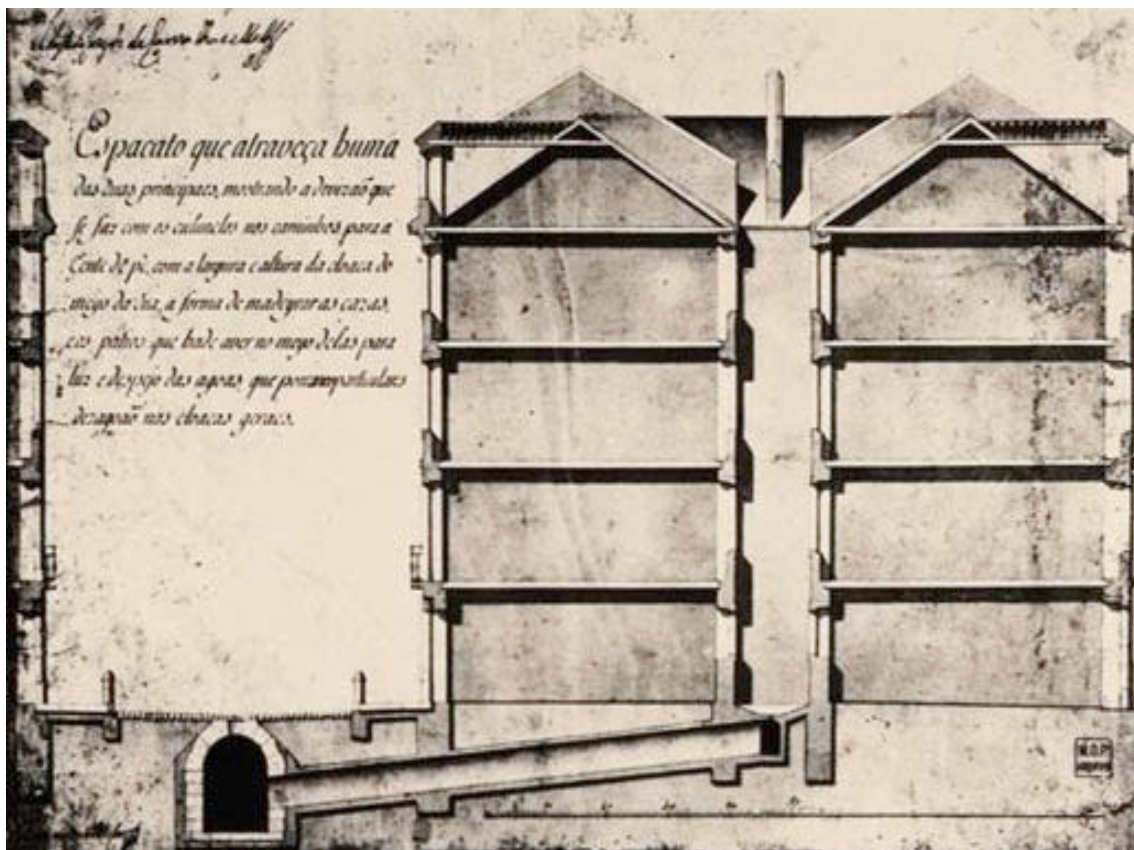 Espacato que atraveça huma
das duas principaes, mostrando a devizaõ que
se faz com os culunelos nos caminhos para a
Gente de pè, com a largura e altura da cloaca do
meyo da Rua, a forma de madeyrar as cazas,
e os pátios que hade aver no meyo delas para
luz e despejo das agoas que por canos particulares
dezagoaõ nas cloacas geraes.
M.O.P.